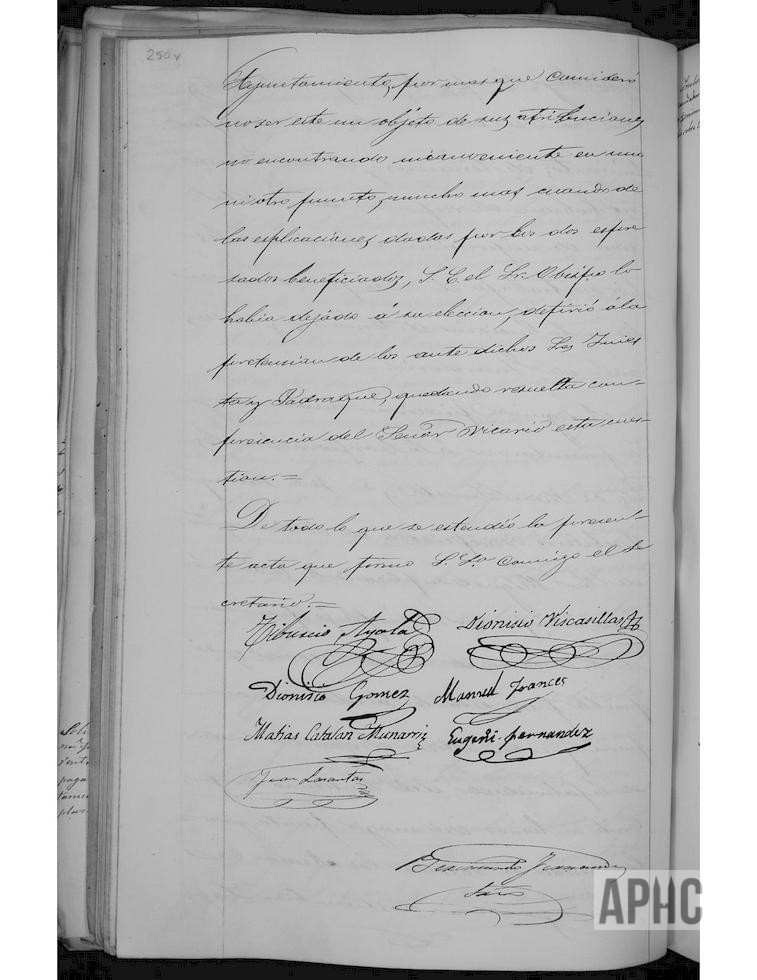 250v
Ayuntamiento, por mas que consideró
no ser este un objeto de sus atribuciones
no encontrando inconveniente en uno
ni otro punto, mucho mas cuando de
las esplicaciones dadas por los dos espre
sados beneficiados, S. E. el Sr. Obispo lo
habia dejado á su eleccion, defirió á la
pretension de los ante dichos Sres Inies
ta y Jadraque, quedando resuelta con-
presencia del Señor Vicario esta cues-
tion.=
De todo lo que se estendió la presen-
te acta que firmó S. Sª conmigo el Se
cretario.=
Tiburcio Ayala Dionisio Viscasillas
Dionisio Gomez Manuel Frances
Matias Catalan Munarriz Eugenio Fernandez
Juan
Fernandez
APHC